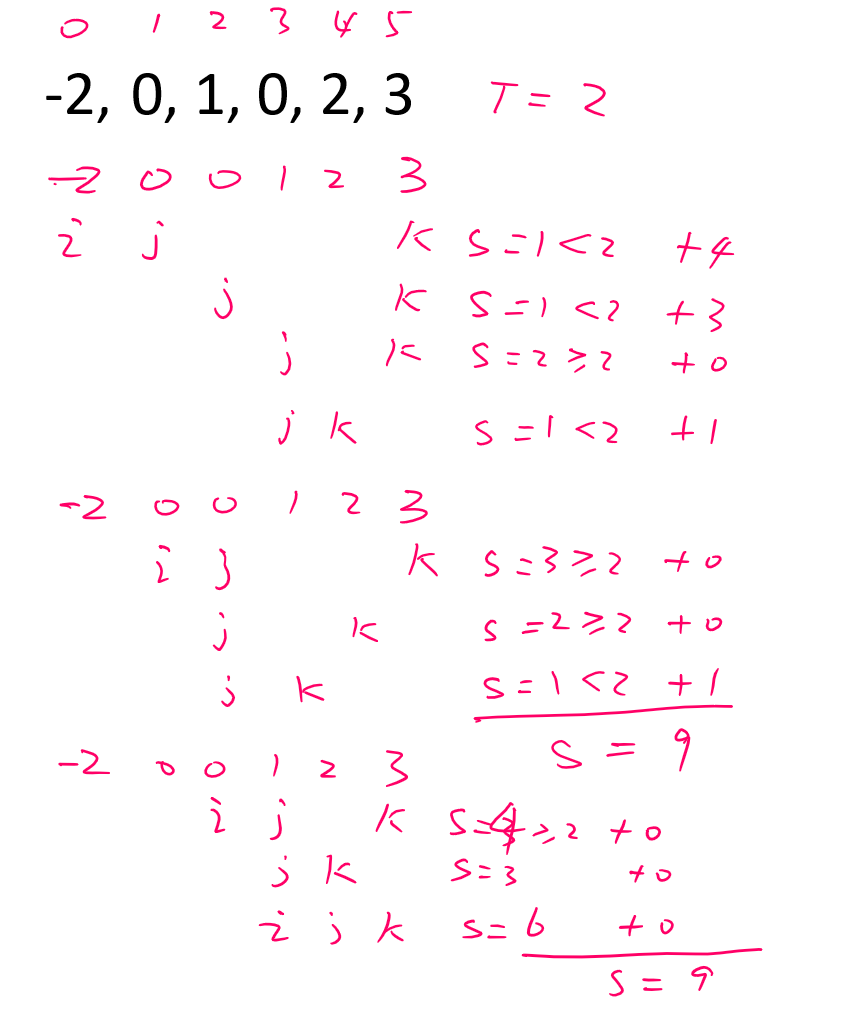 0 1 2 3 4 5
-2, 0, 1, 0, 2, 3 T = 2
-2 0 0 1 2 3
i j k S = 1 < 2 + 4
j k S = 1 < 2 + 3
j k S = 2 ≥ 2 + 0
j k S = 1 < 2 + 1
-2 0 0 1 2 3
i j k S = 3 ≥ 2 + 0
j k S = 2 ≥ 2 + 0
j k S = 1 < 2 + 1
S = 9
-2 0 0 1 2 3
i j k S = 4 ≥ 2 + 0
j k S = 3 + 0
i j k S = 6 + 0
S = 9